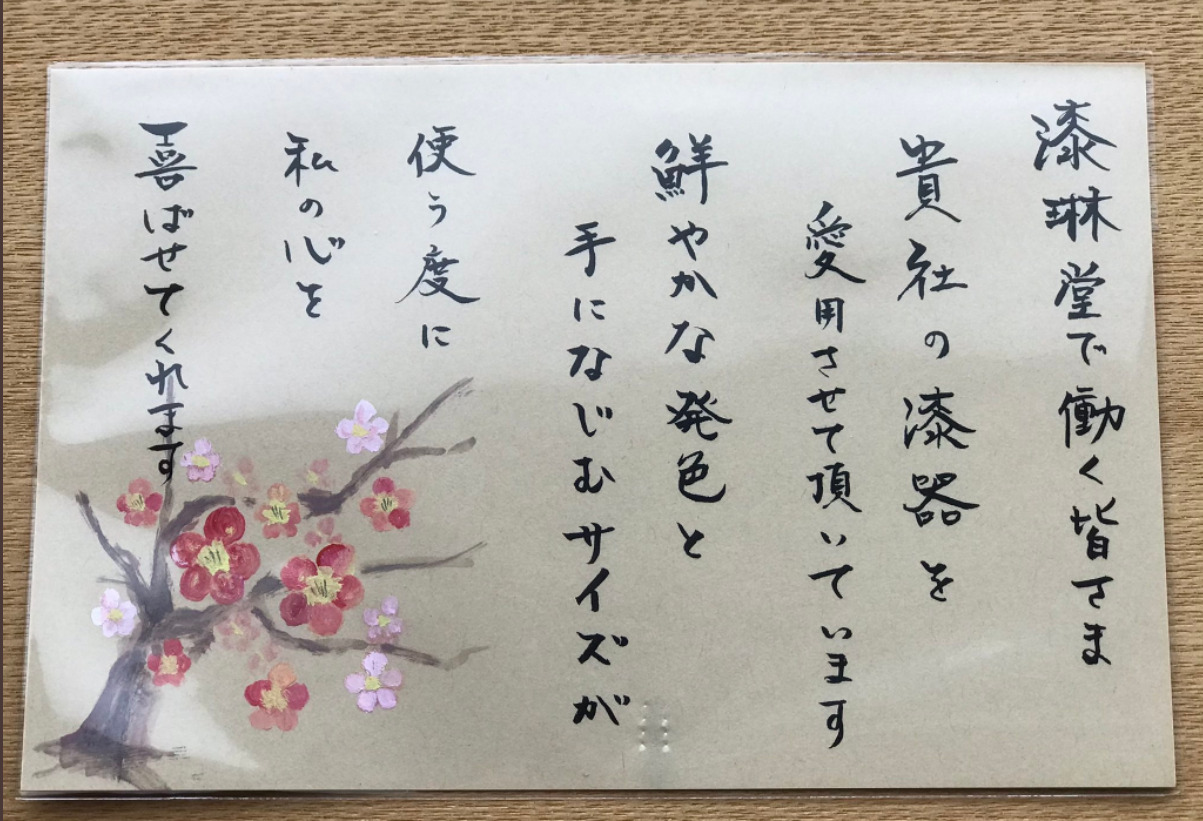 漆琳堂で働く皆さま
貴社の漆器を
愛用させて頂いています
鮮やかな発色と
手になじむサイズが
使う度に
私の心を
喜ばせてくれます